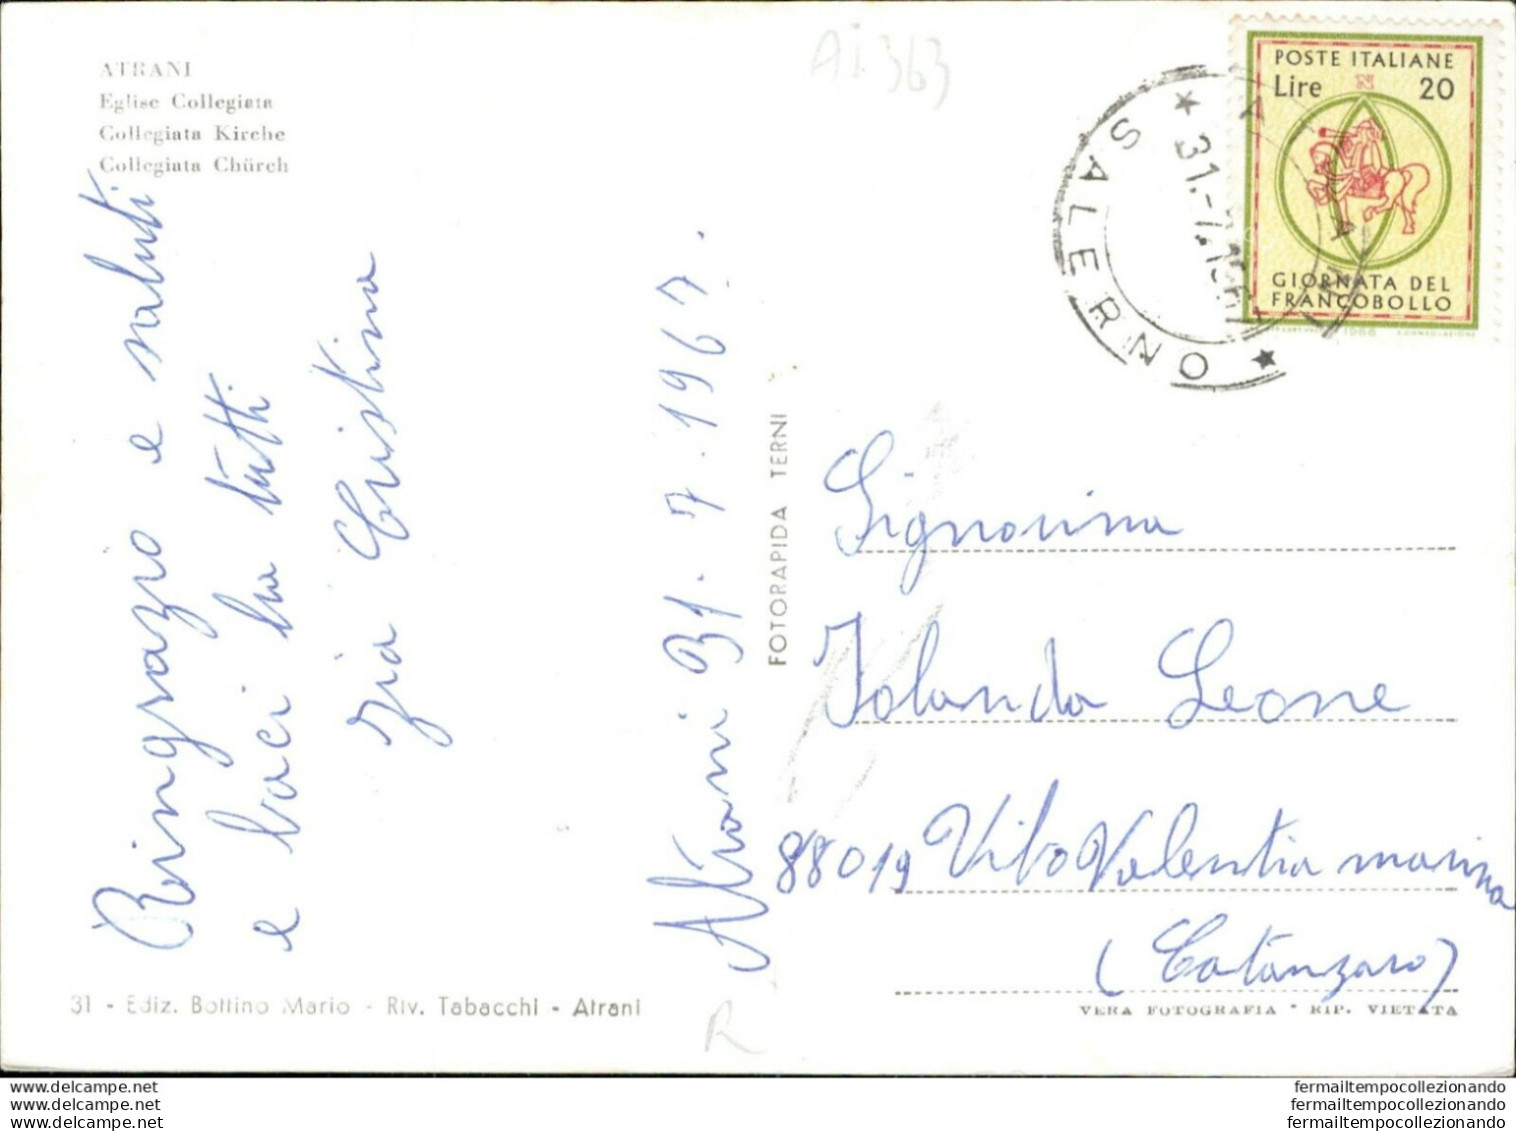 ATRANI
Eglise Collegiata
Collegiata Kirche
Collegiata Chürch
Ai 363
POSTE ITALIANE
Lire 20
GIORNATA DEL
FRANCOBOLLO
1966
ATRANI
★ SALERNO ★
31.-7.1967
Ringrazio e saluti
e baci ha tutti
zia Cristina
Atrani 31.7.1967.
FOTORAPIDA TERNI
Signorina
Iolanda Leone
88019 Vibo Valentia marina
(Catanzaro)
31 - Ediz. Bottino Mario - Riv. Tabacchi - Atrani
R
VERA FOTOGRAFIA - RIP. VIETATA
su.delcampe.net
su.delcampe.net
su.delcampe.net
fermailtempocollezionando
fermailtempocollezionando
fermailtempocollezionando